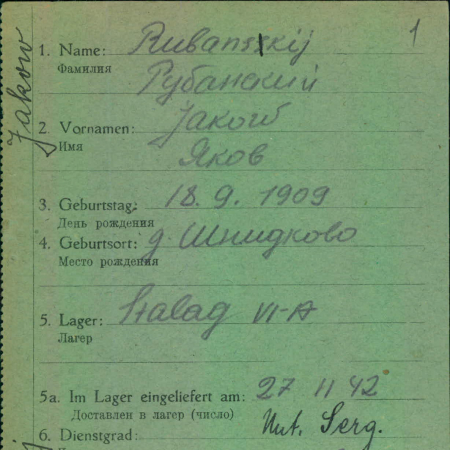 1
1. Name: Rubanskij
Фамилия
Рубанский
2. Vornamen: Jakow
Имя
Яков
3. Geburtstag: 18. 9. 1909
День рождения
4. Geburtsort: д. Шнидково
Место рождения
5. Lager: Stalag VI-A
Лагер
5a. Im Lager eingeliefert am: 27 11 42
Доставлен в лагер (число)
6. Dienstgrad: Unt. Serg.
Jakow